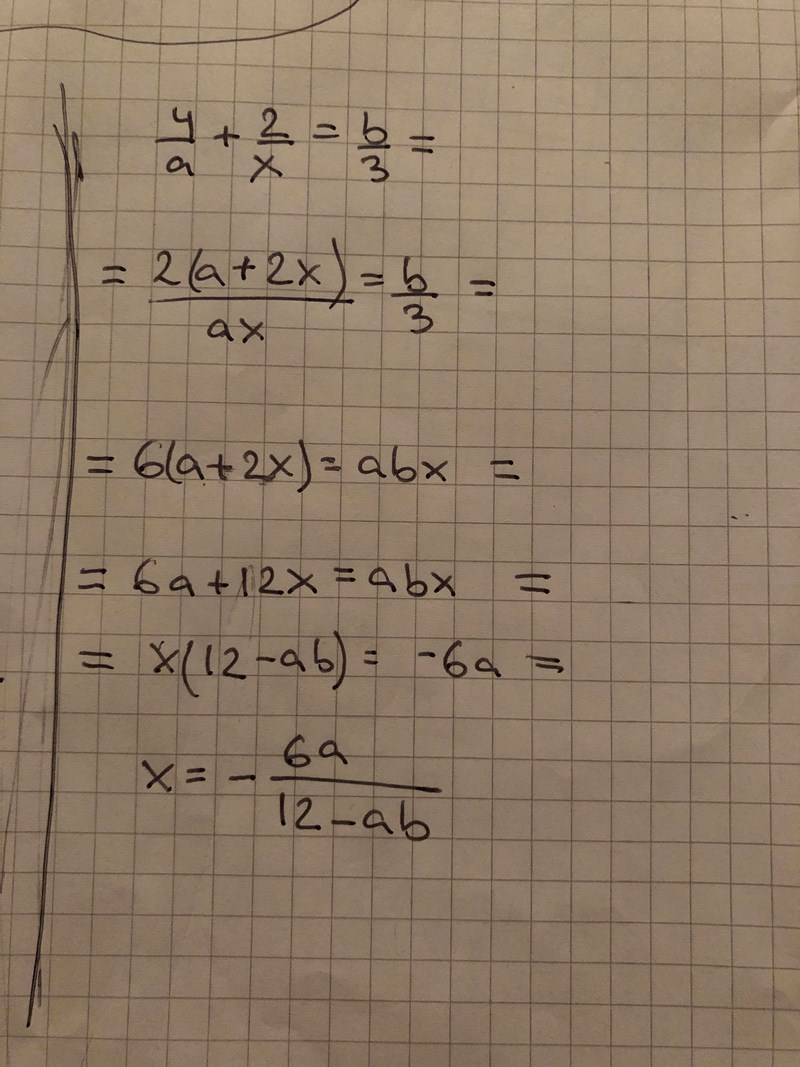 4/a + 2/x = b/3 =
= 2(a+2x)/ax = b/3 =
= 6(a+2x) = abx =
= 6a+12x = abx =
= x(12-ab) = -6a =
x = - 6a/12-ab